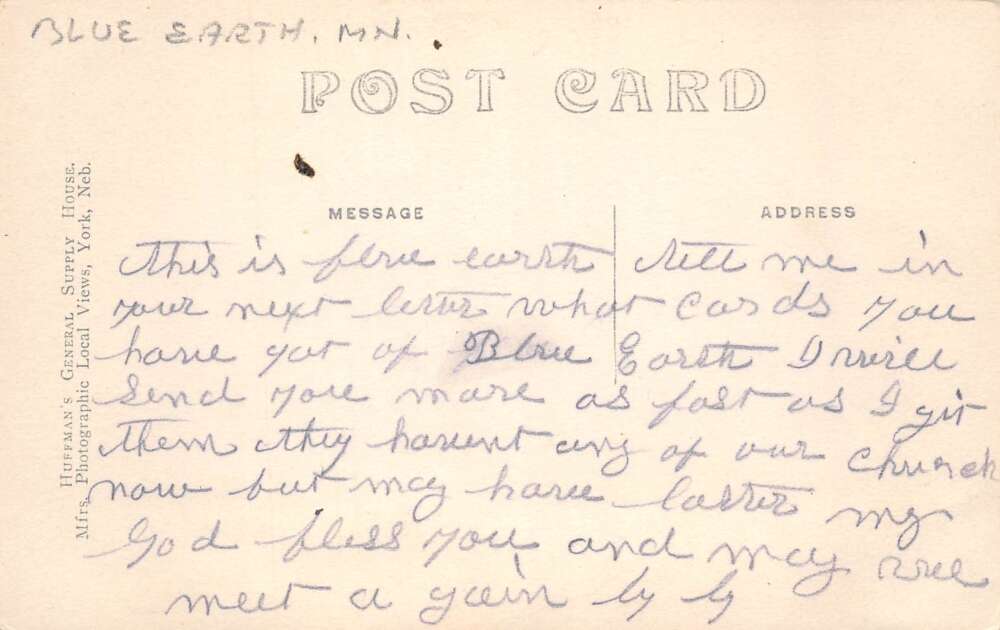 BLUE EARTH, MN.
POST CARD
HUFFMAN'S GENERAL SUPPLY HOUSE.
Mfrs. Photographic Local Views, York, Neb.
MESSAGE
ADDRESS
this is blue earth tell me in
your next letter what cards you
have got of Blue Earth I will
send you more as fast as I git
them they havent any of our church
now but may have latter my
God bless you and may we
meet a gain by by